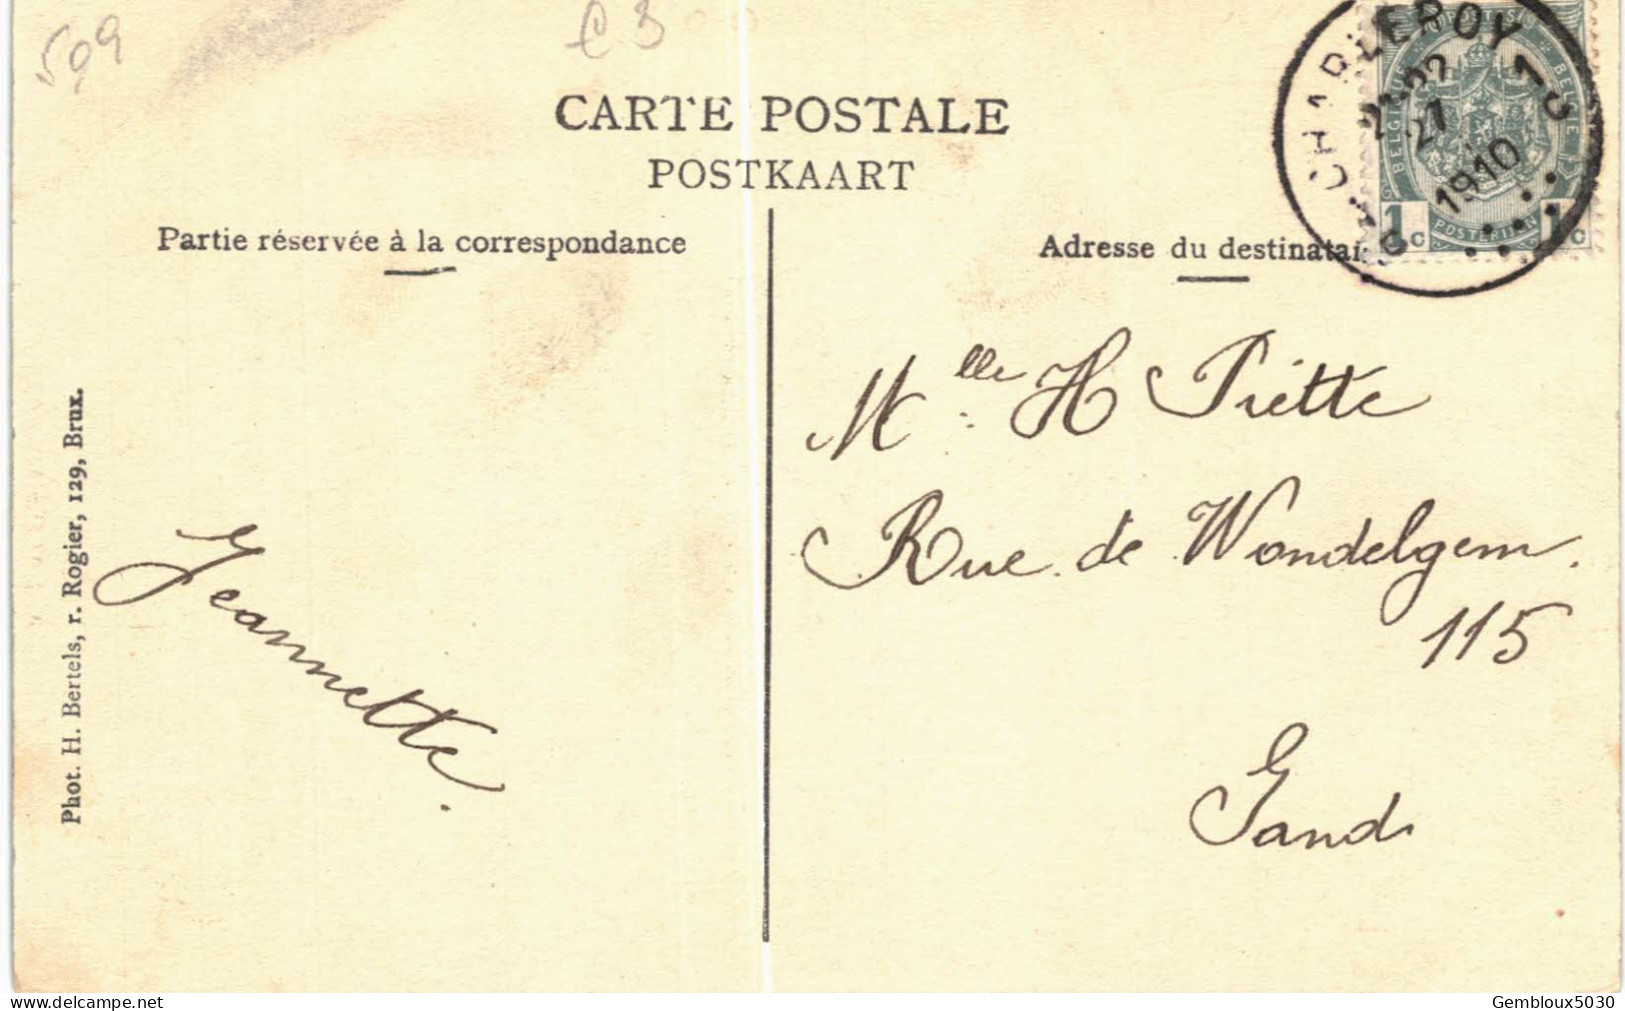 509
€ 3
CARTE POSTALE
POSTKAART
Partie réservée à la correspondance
Adresse du destinatai
CHARLEROY 1
21-22
1910
BELGIQUE
BELGIË
POSTERIJEN
1c
1c
Mlle H Piette
Rue de Wondelgem.
115
Gand
Jeannette.
Phot. H. Bertels, r. Rogier, 129, Brux.
www.delcampe.net
Gembloux5030